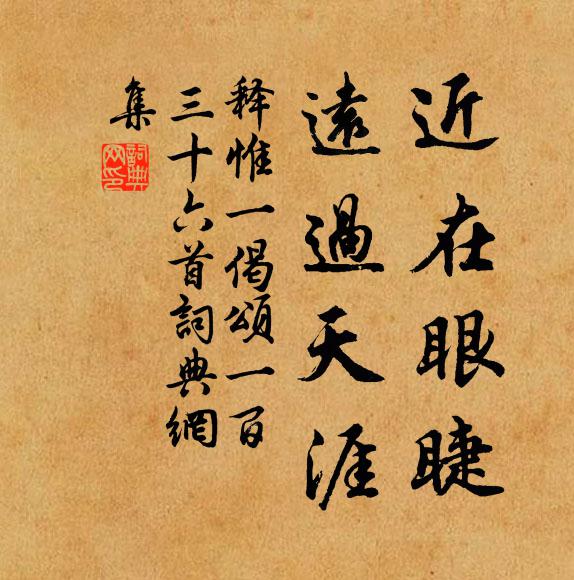 近在眼睫
遠過天涯
释惟一偈頌一百
三十六首詞典網
集
詞典
网印